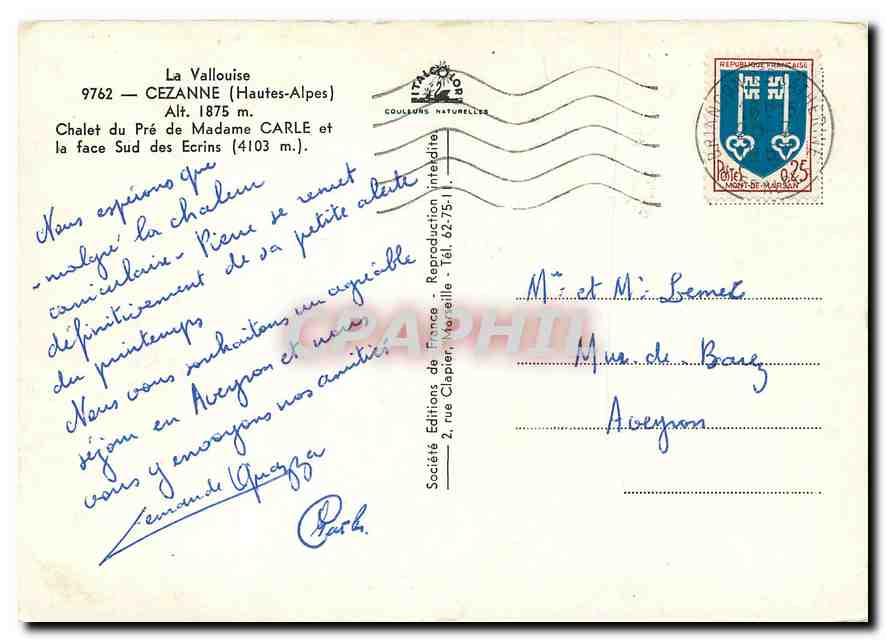 La Vallouise
9762 — CEZANNE (Hautes-Alpes)
Alt. 1875 m.
Chalet du Pré de Madame CARLE et
la face Sud des Ecrins (4103 m.).
Nous espérons que
malgré la chaleur
caniculaire - Pierre se remet
définitivement de sa petite alerte
du printemps
Nous vous souhaitons un agréable
séjour en Aveyron et nous
vous y envoyons nos amitiés
ITALCOLOR
COULEURS NATURELLES
Société Editions de France - Reproduction interdite
2, rue Clapier, Marseille - Tél. 62-75-11
REPUBLIQUE FRANÇAISE
POSTES 0,25
MONT-DE-MARSAN
BRIANCON
Mme et Mr Lemet
Mur-de-Barez
Aveyron
CPAPHIL